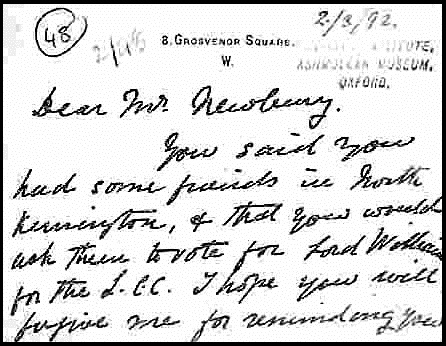 48
2/3/92.
8. GROSVENOR SQUARE.
W.
INSTITUTE,
ASHMOLEAN MUSEUM,
OXFORD.
Dear Mr. Newbury.
You said you
had some friends in North
Kensington, & that you would
ask them to vote for Lord William
for the L.C.C. I hope you will
forgive me for reminding you